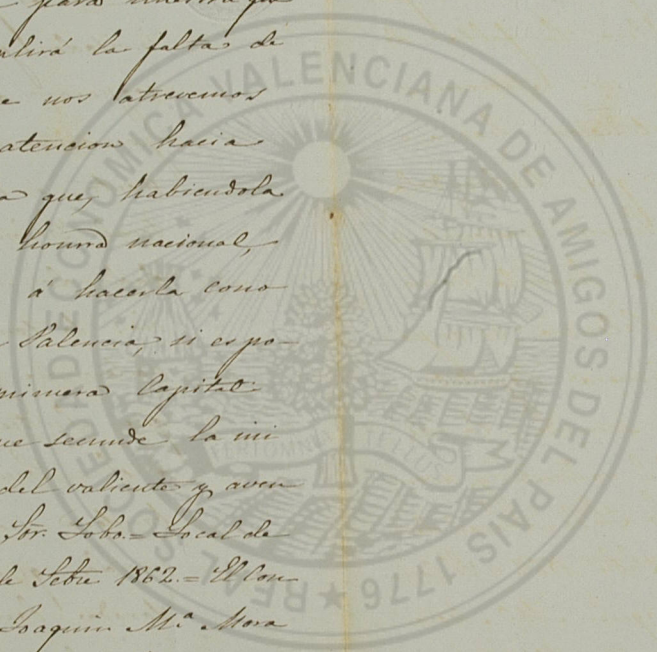 para nuestra
la falta de
nos atrevemos
atencion hacia
que, habiendola
honra nacional,
á hacerla cono
Valencia, si es po-
primera Capital
que secunde la mi
del valiente y aven
Sōr. Lobo. = Local de
de Setre 1862. = El Con
Joaquin Mª Mora
REAL SOCIEDAD ECONOMICA VALENCIANA DE AMIGOS DEL PAIS 1776 ★
FERTOMNIA TELLUS